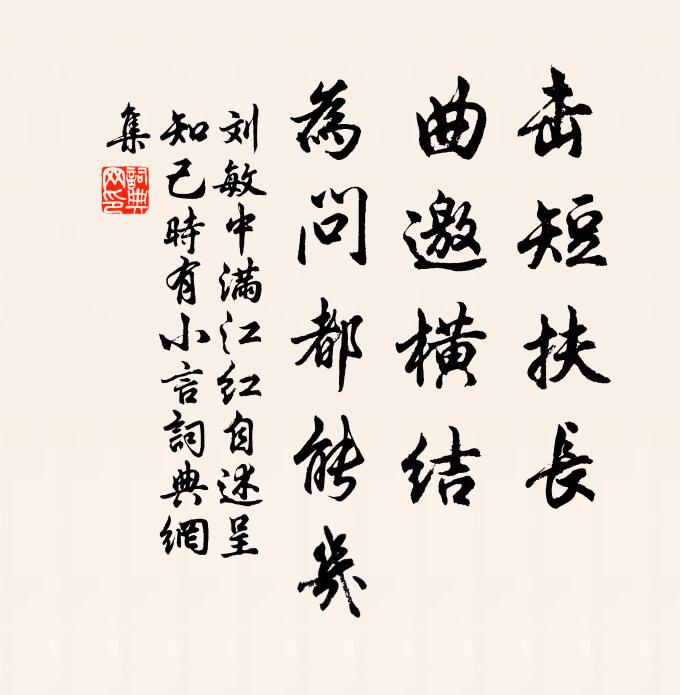 击短扶長
曲邀橫結
為問都能幾
刘敏中滿江红自述呈
知己時有小言詞典網
集
詞典
网印